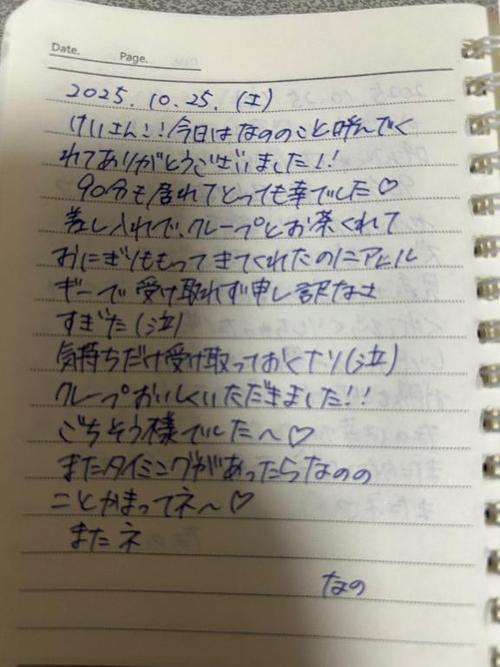 Date. Page.
2025. 10. 25. (土)
けいさん!! 今日はなののこと呼んでく
れてありがとうございました!!
90分も居れてとっても幸でした♡
差し入れで、クレープとお茶くれて
おにぎりももってきてくれたのにアレル
ギーで受け取れず申し訳なさ
すぎた(泣)
気持ちだけ受け取っておくナリ(泣)
クレープおいしくいただきました!!
ごちそう様でした〜♡
またタイミングがあったらなのの
ことかまってネ〜♡
またネ
なの